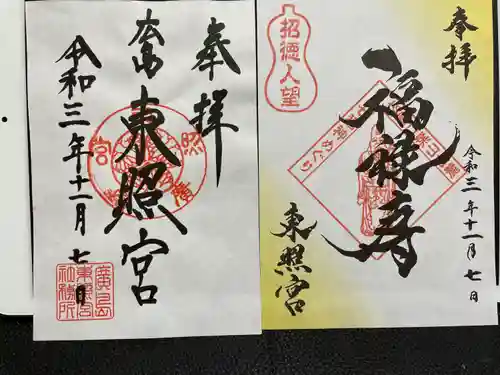 奉拝
東照宮
令和三年十一月七日
廣島
東照宮
社務所
奉拝
招徳人望
福禄寿
令和三年十一月七日
東照宮